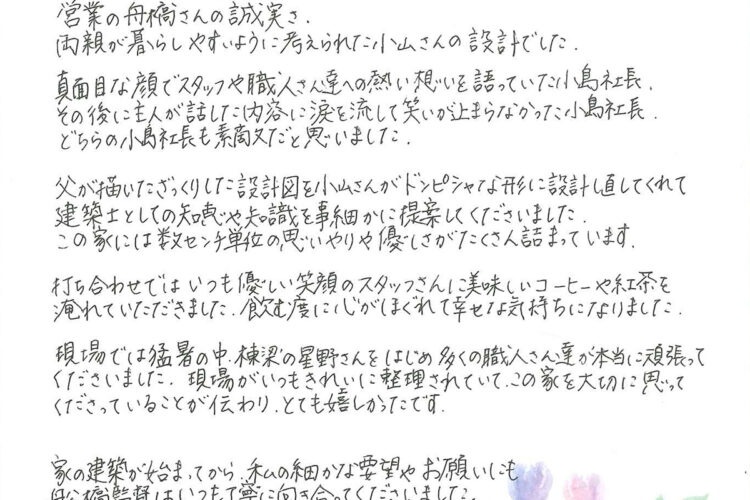 営業の舟橋さんの誠実さ.
両親が暮らしやすいように考えられた小山さんの設計でした.
真面目な顔でスタッフや職人さん達への熱い想いを語っていた小島社長.
その後に主人が話した内容に涙を流して笑いが止まらなかった小島社長.
どちらの小島社長も素敵だと思いました.
父が描いたざっくりした設計図を小山さんがドンピシャな形に設計し直してくれて
建築士としての知恵や知識を事細かに提案してくださいました.
この家には数センチ単位の思いやりや優しさがたくさん詰まっています.
打ち合わせでは いつも優しい笑顔のスタッフさんに美味しいコーヒーや紅茶を
淹れていただきました.飲む度に心がほぐれて幸せな気持ちになりました.
現場では猛暑の中.棟梁の星野さんをはじめ多くの職人さん達が本当に頑張って
くださいました.現場がいつもきれいに整理されていて.この家を大切に思って
くださっていることが伝わり.とても嬉しかったです.
家の建築が始まってから.私の細かな要望やお願いにも
舩橋監督はいつも丁寧に向き合ってくださいました.